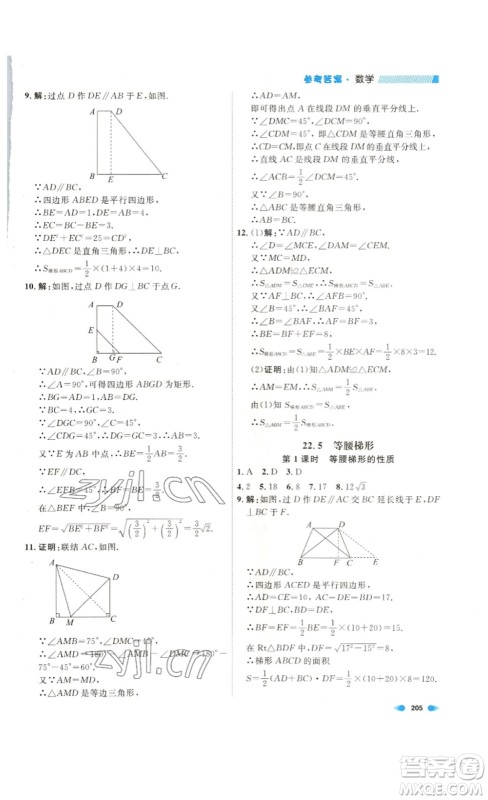 参考答案·数学
9.解:过点 D 作 DE∥AB 于 E,如图.
A D
B E C
∵AD∥BC,
∴四边形 ABED 是平行四边形,
∴BE=AD=1,
∴CE=4,
∵DE²+CE²=25=CD²,
∴△DEC 是直角三角形,
∴S梯形ABCD=1/2×(1+4)×4=10.
10.解:如图,过点 D 作 DG⊥BC 于点 G.
A D
E
B G F C
∵AD∥BC,
∴∠A=90°,可得四边形 ABGD 为矩形.
∴BG=AD=1,AB=DG.
∵BC=4,∴GC=3.
∵∠DGC=90°,∠C=45°,
∴∠CDG=45°,
∴DG=GC=3,
∴AB=3.
又∵E 为 AB 中点,
∴BE=1/2AB=3/2.
∵EF∥DC,
∴∠EFB=45°,
在△BEF中,∠B=90°,
EF=√(BE²+BF²)=√((3/2)²+(3/2)²)=3/2√2.
11.证明:联结 AC,如图.
A D
B M C
∵∠AMB=75°,∠DMC=45°,
∴∠AMD=180°-∠AMB-∠DMC=180°-75°-45°=60°
又∵AM=DM,
∴△AMD 是等边三角形,
∴AD=AM,
即可得出点 A 在线段 DM 的垂直平分线上.
∵∠DMC=45°,∠DCB=90°,
∴△DMC 是等腰直角三角形,
∴点 C 在线段 DM 的垂直平分线上,
∴直线 AC 是线段 DM 的垂直平分线,
∴∠ACB=1/2∠DCM=45°,
∴△ABC 是等腰直角三角形,
∴AB=BC.
12.(1)解:∵AD∥BC,
∴∠D=∠MCE.
又∵MC=MD,
∠AMD=∠CME,
∴△ADM≌△ECM.
∴S△ADM=S△CME,AD=CE,
∴S梯形ABCD=S△ABE,
∵AD+BC=8,
∴BE=8.
∵AF⊥BC,
∴S梯形ABCD=1/2×BE×AF=1/2×8×3=12.
(2)证明:由(1)知△ADM≌△ECM,
∴AM=EM,∴S△ABM=1/2S△ABE,
由(1)知 S梯形ABCD=S△ABE,
∴S△ABM=1/2S梯形ABCD.
22.5 等腰梯形
第1课时 等腰梯形的性质
1.A 2.D 3.D
9.解:如图,过 D 作 DE∥AC 交 BC 延长线于 E,DF⊥BC 于 F.
A D
B F C E
∵AD∥BC,
∴四边形 ACED 是平行四边形,
∴AD=CE,
∴DE=AC=BD,
∴BF=EF=1/2BE=1/2(AD+BC)=15,
在 Rt△DBF 中,DF=√(17²-15²)=8,
∴梯形 ABCD 的面积
S=1/2(AD+BC)·DF=1/2×30×8=120.
205